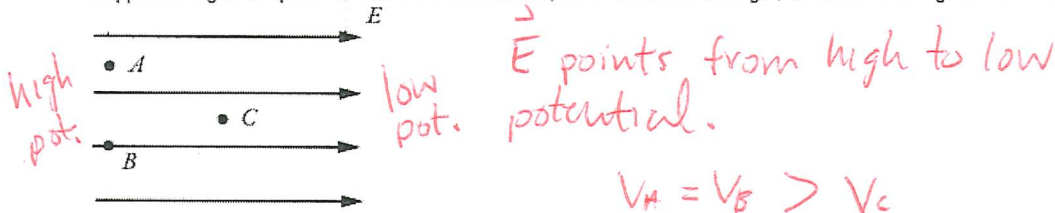 E
A
high
pot.
C
B
low
pot.
E points from high to low
potential.
V_A = V_B > V_C